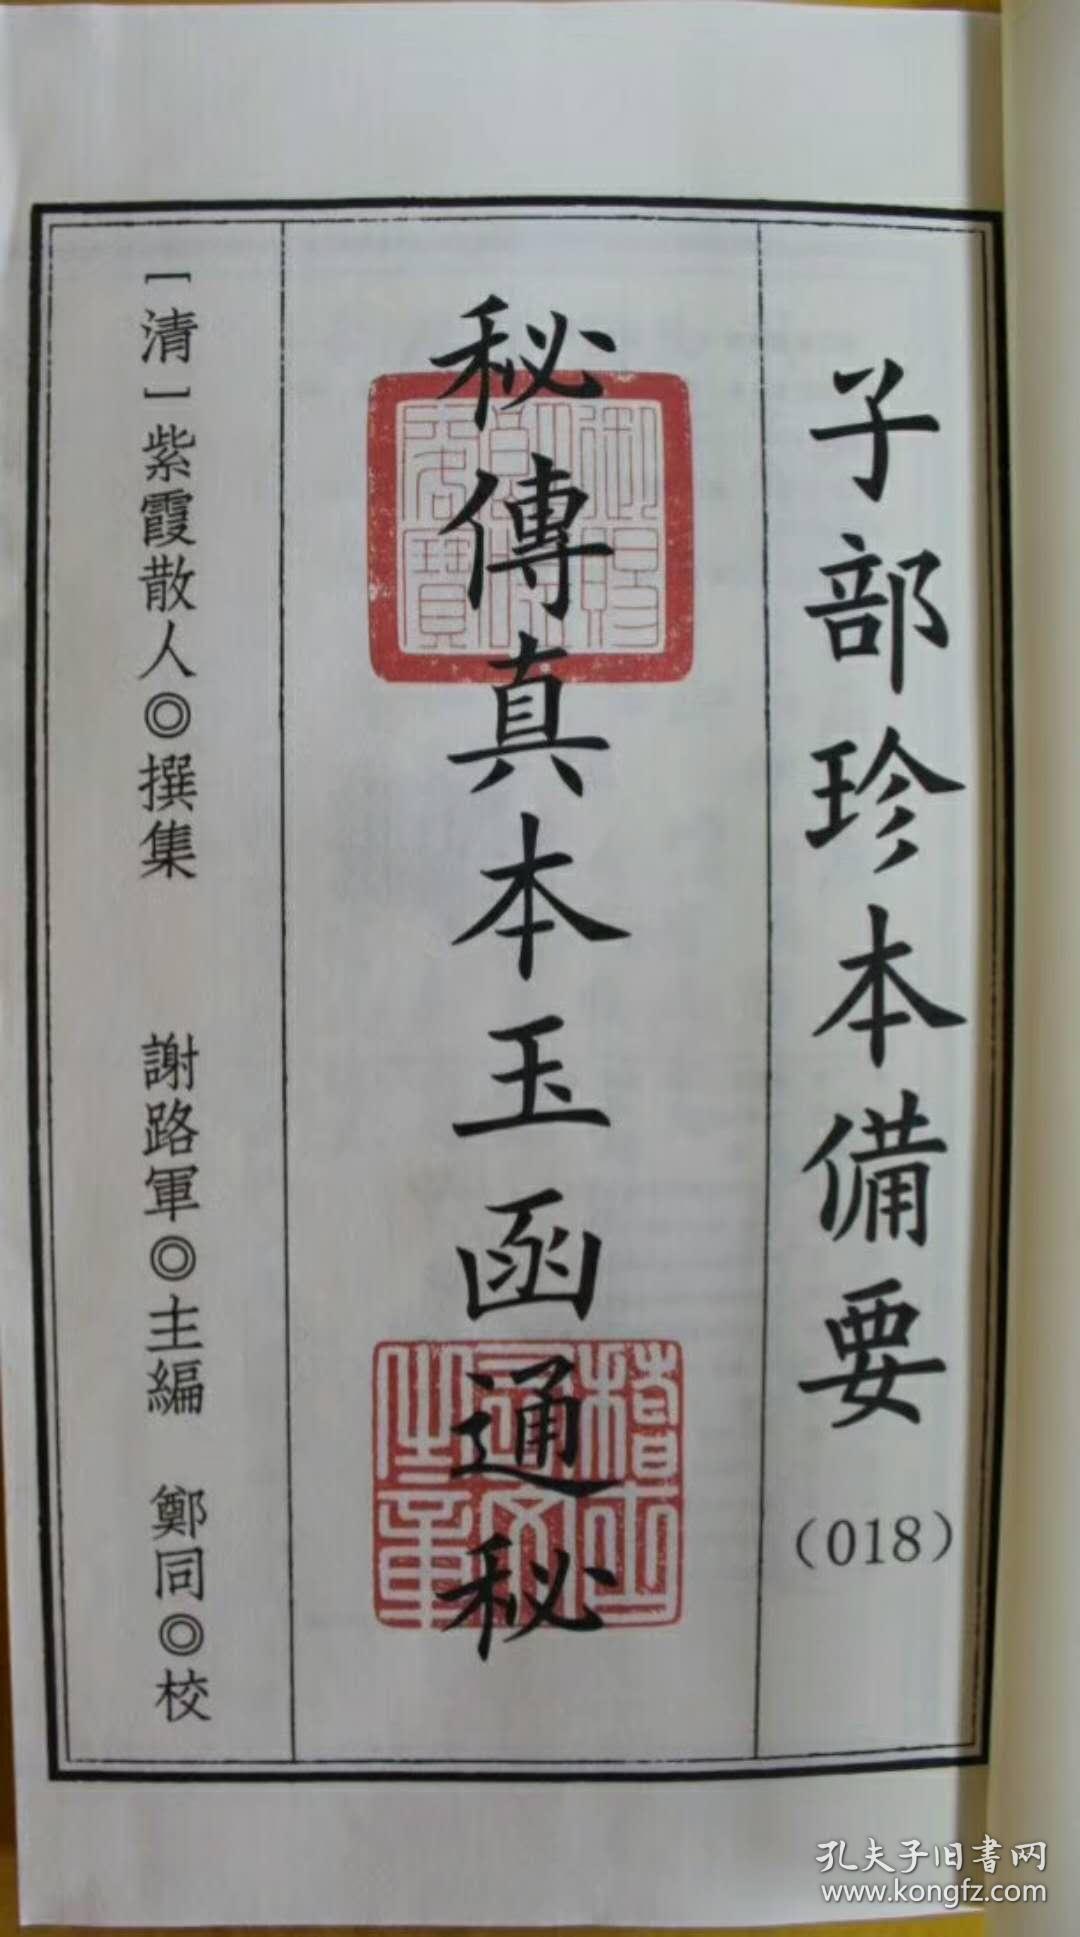 子部珍本備要
（018）
秘傳真本玉函通秘
［清］紫霞散人◎撰集
謝路軍◎主編
鄭同◎校
孔夫子旧書网
www.kongfz.com